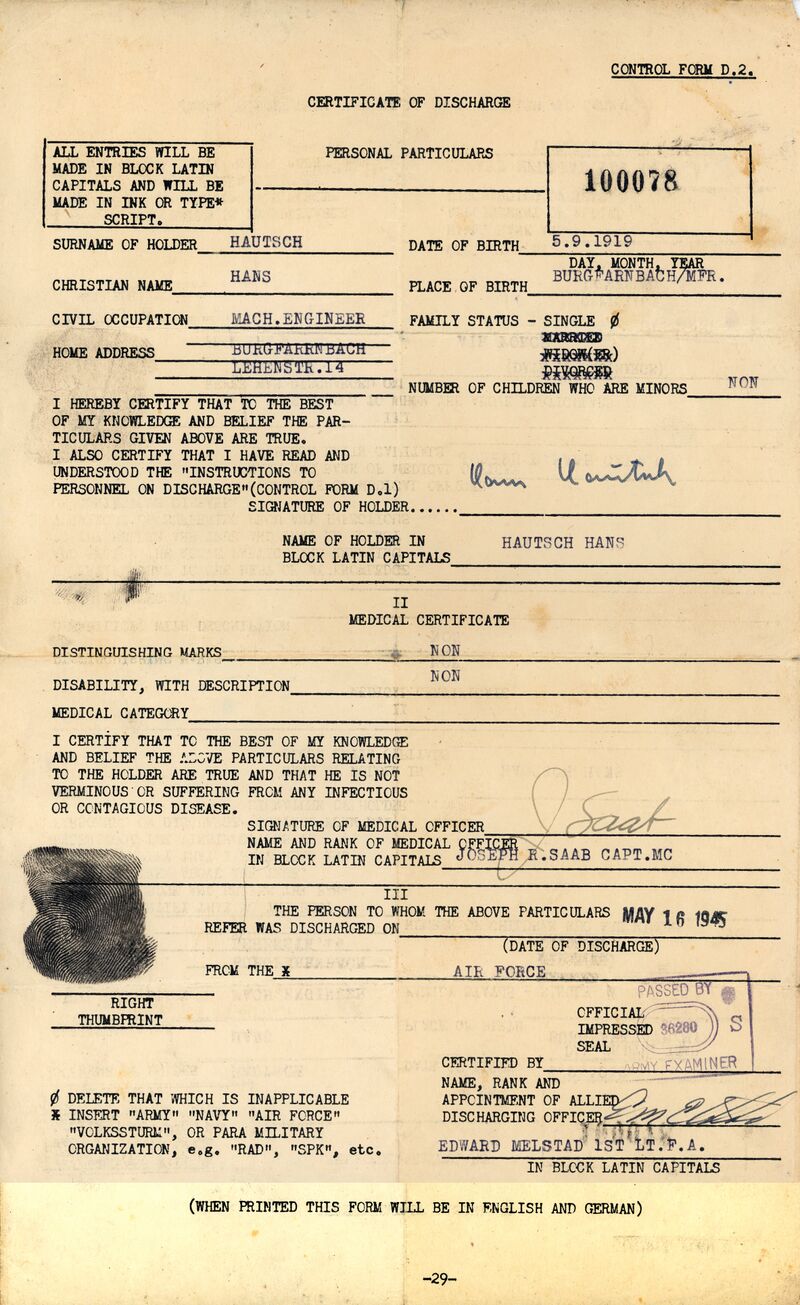 CONTROL FORM D.2.
CERTIFICATE OF DISCHARGE
ALL ENTRIES WILL BE
MADE IN BLOCK LATIN
CAPITALS AND WILL BE
MADE IN INK OR TYPE*
SCRIPT.
PERSONAL PARTICULARS
100078
SURNAME OF HOLDER HAUTSCH
DATE OF BIRTH 5.9.1919
DAY, MONTH, YEAR
CHRISTIAN NAME HANS
PLACE OF BIRTH BURGFARNBACH/MFR.
CIVIL OCCUPATION MACH.ENGINEER
FAMILY STATUS - SINGLE ∅
MARRIED
WIDOW(ER)
DIVORCED
HOME ADDRESS BURGFARRNBACH
LEHENSTR.14
NUMBER OF CHILDREN WHO ARE MINORS NON
I HEREBY CERTIFY THAT TO THE BEST
OF MY KNOWLEDGE AND BELIEF THE PAR-
TICULARS GIVEN ABOVE ARE TRUE.
I ALSO CERTIFY THAT I HAVE READ AND
UNDERSTOOD THE "INSTRUCTIONS TO
PERSONNEL ON DISCHARGE"(CONTROL FORM D.1)
SIGNATURE OF HOLDER...... Hans Hautsch
NAME OF HOLDER IN
BLOCK LATIN CAPITALS HAUTSCH HANS
II
MEDICAL CERTIFICATE
DISTINGUISHING MARKS NON
DISABILITY, WITH DESCRIPTION NON
MEDICAL CATEGORY
I CERTIFY THAT TO THE BEST OF MY KNOWLEDGE
AND BELIEF THE ABOVE PARTICULARS RELATING
TO THE HOLDER ARE TRUE AND THAT HE IS NOT
VERMINOUS OR SUFFERING FROM ANY INFECTIOUS
OR CONTAGIOUS DISEASE.
SIGNATURE OF MEDICAL OFFICER Saab
NAME AND RANK OF MEDICAL OFFICER
IN BLOCK LATIN CAPITALS JOSEPH R.SAAB CAPT.MC
III
THE PERSON TO WHOM THE ABOVE PARTICULARS
REFER WAS DISCHARGED ON MAY 16 1945
(DATE OF DISCHARGE)
FROM THE * AIR FORCE
RIGHT
THUMBPRINT
PASSED BY
OFFICIAL
IMPRESSED 36280 S
SEAL
CERTIFIED BY
ARMY EXAMINER
NAME, RANK AND
APPOINTMENT OF ALLIED
DISCHARGING OFFICER
EDWARD MELSTAD 1ST LT.F.A.
IN BLOCK LATIN CAPITALS
∅ DELETE THAT WHICH IS INAPPLICABLE
* INSERT "ARMY" "NAVY" "AIR FORCE"
"VOLKSSTURM", OR PARA MILITARY
ORGANIZATION, e.g. "RAD", "SPK", etc.
(WHEN PRINTED THIS FORM WILL BE IN ENGLISH AND GERMAN)
-29-